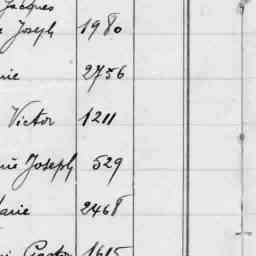 Jacques
Joseph 1980
rie 2756
Victor 1211
Joseph 529
Marie 2468
Gaston 1615